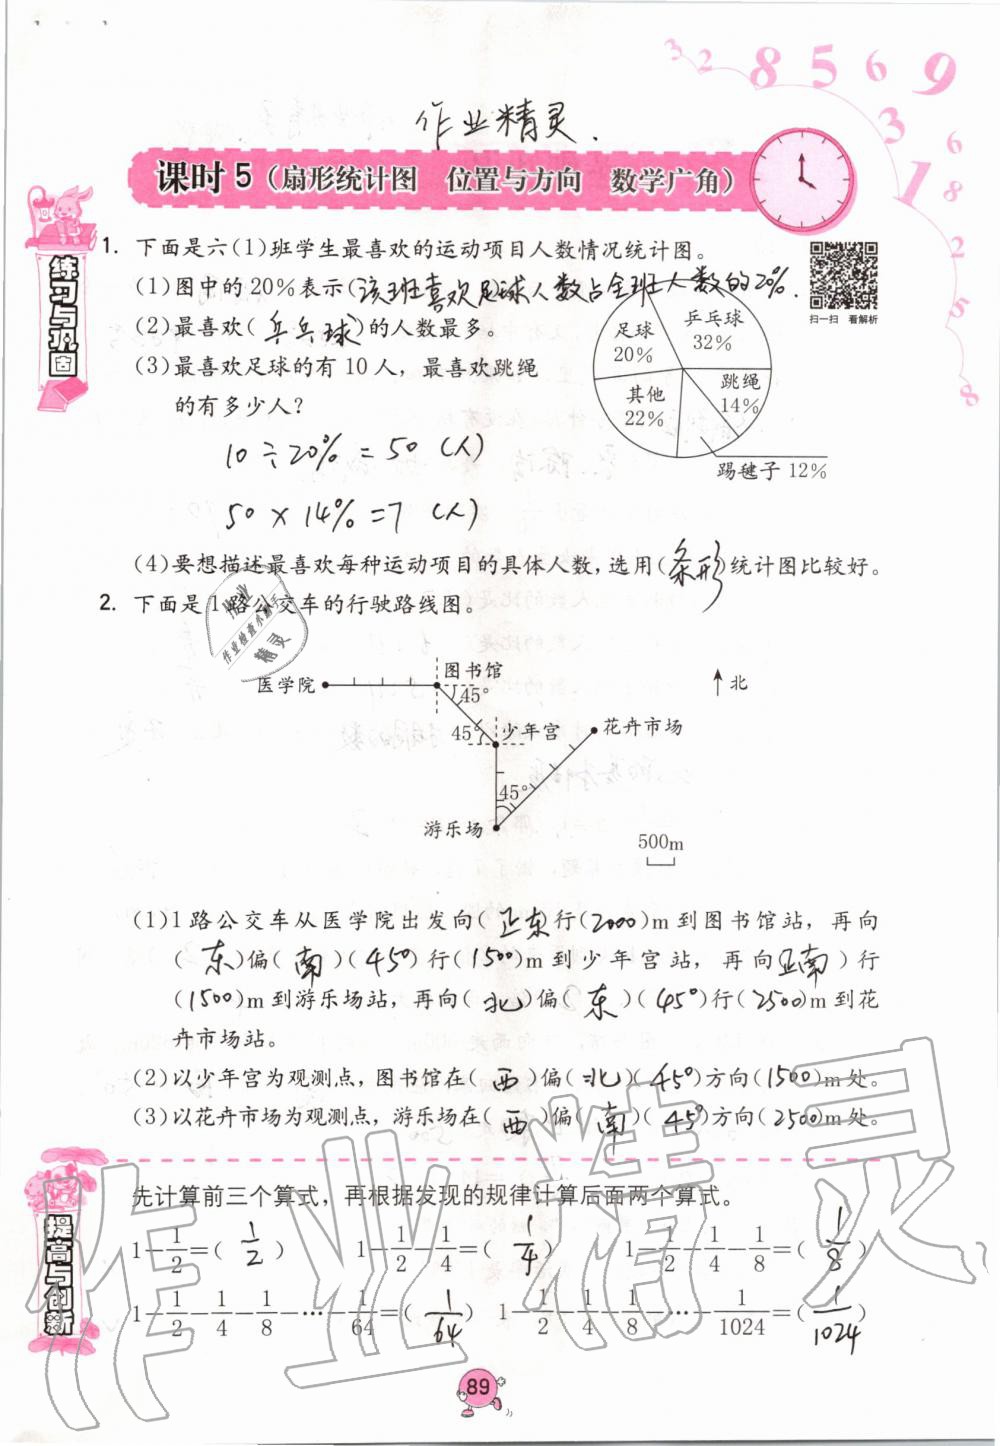 3 2 8 5 6 9 3 1 6 8 2 5 8
作业精灵.
课时5（扇形统计图 位置与方向 数学广角）
练习与巩固
1. 下面是六(1)班学生最喜欢的运动项目人数情况统计图。
(1)图中的20%表示(该班喜欢足球人数占全班人数的20%.
扫一扫 看解析
(2)最喜欢(乒乓球)的人数最多。
(3)最喜欢足球的有10人，最喜欢跳绳
的有多少人？
足球 20%
乒乓球 32%
跳绳 14%
其他 22%
踢毽子 12%
10÷20%=50(人)
50×14%=7(人)
(4)要想描述最喜欢每种运动项目的具体人数，选用(条形)统计图比较好。
2. 下面是1路公交车的行驶路线图。
作业
作业检查小助手
精灵
医学院
图书馆
45°
北
45°
少年宫
花卉市场
45°
游乐场
500m
(1)1路公交车从医学院出发向(正东)行(2000)m到图书馆站，再向
(东)偏(南)(45°)行(1500)m到少年宫站，再向(正南)行
(1500)m到游乐场站，再向(北)偏(东)(45°)行(2500)m到花
卉市场站。
(2)以少年宫为观测点，图书馆在(西)偏(北)(45°)方向(1500)m处。
(3)以花卉市场为观测点，游乐场在(西)偏(南)(45°)方向(2500)m处。
作业精灵
提高与创新
先计算前三个算式，再根据发现的规律计算后面两个算式。
1-1/2=(1/2) 1-1/2-1/4=(1/4) 1-1/2-1/4-1/8=(1/8)
1-1/2-1/4-1/8-…-1/64=(1/64) 1-1/2-1/4-1/8-…-1/1024=(1/1024)
89